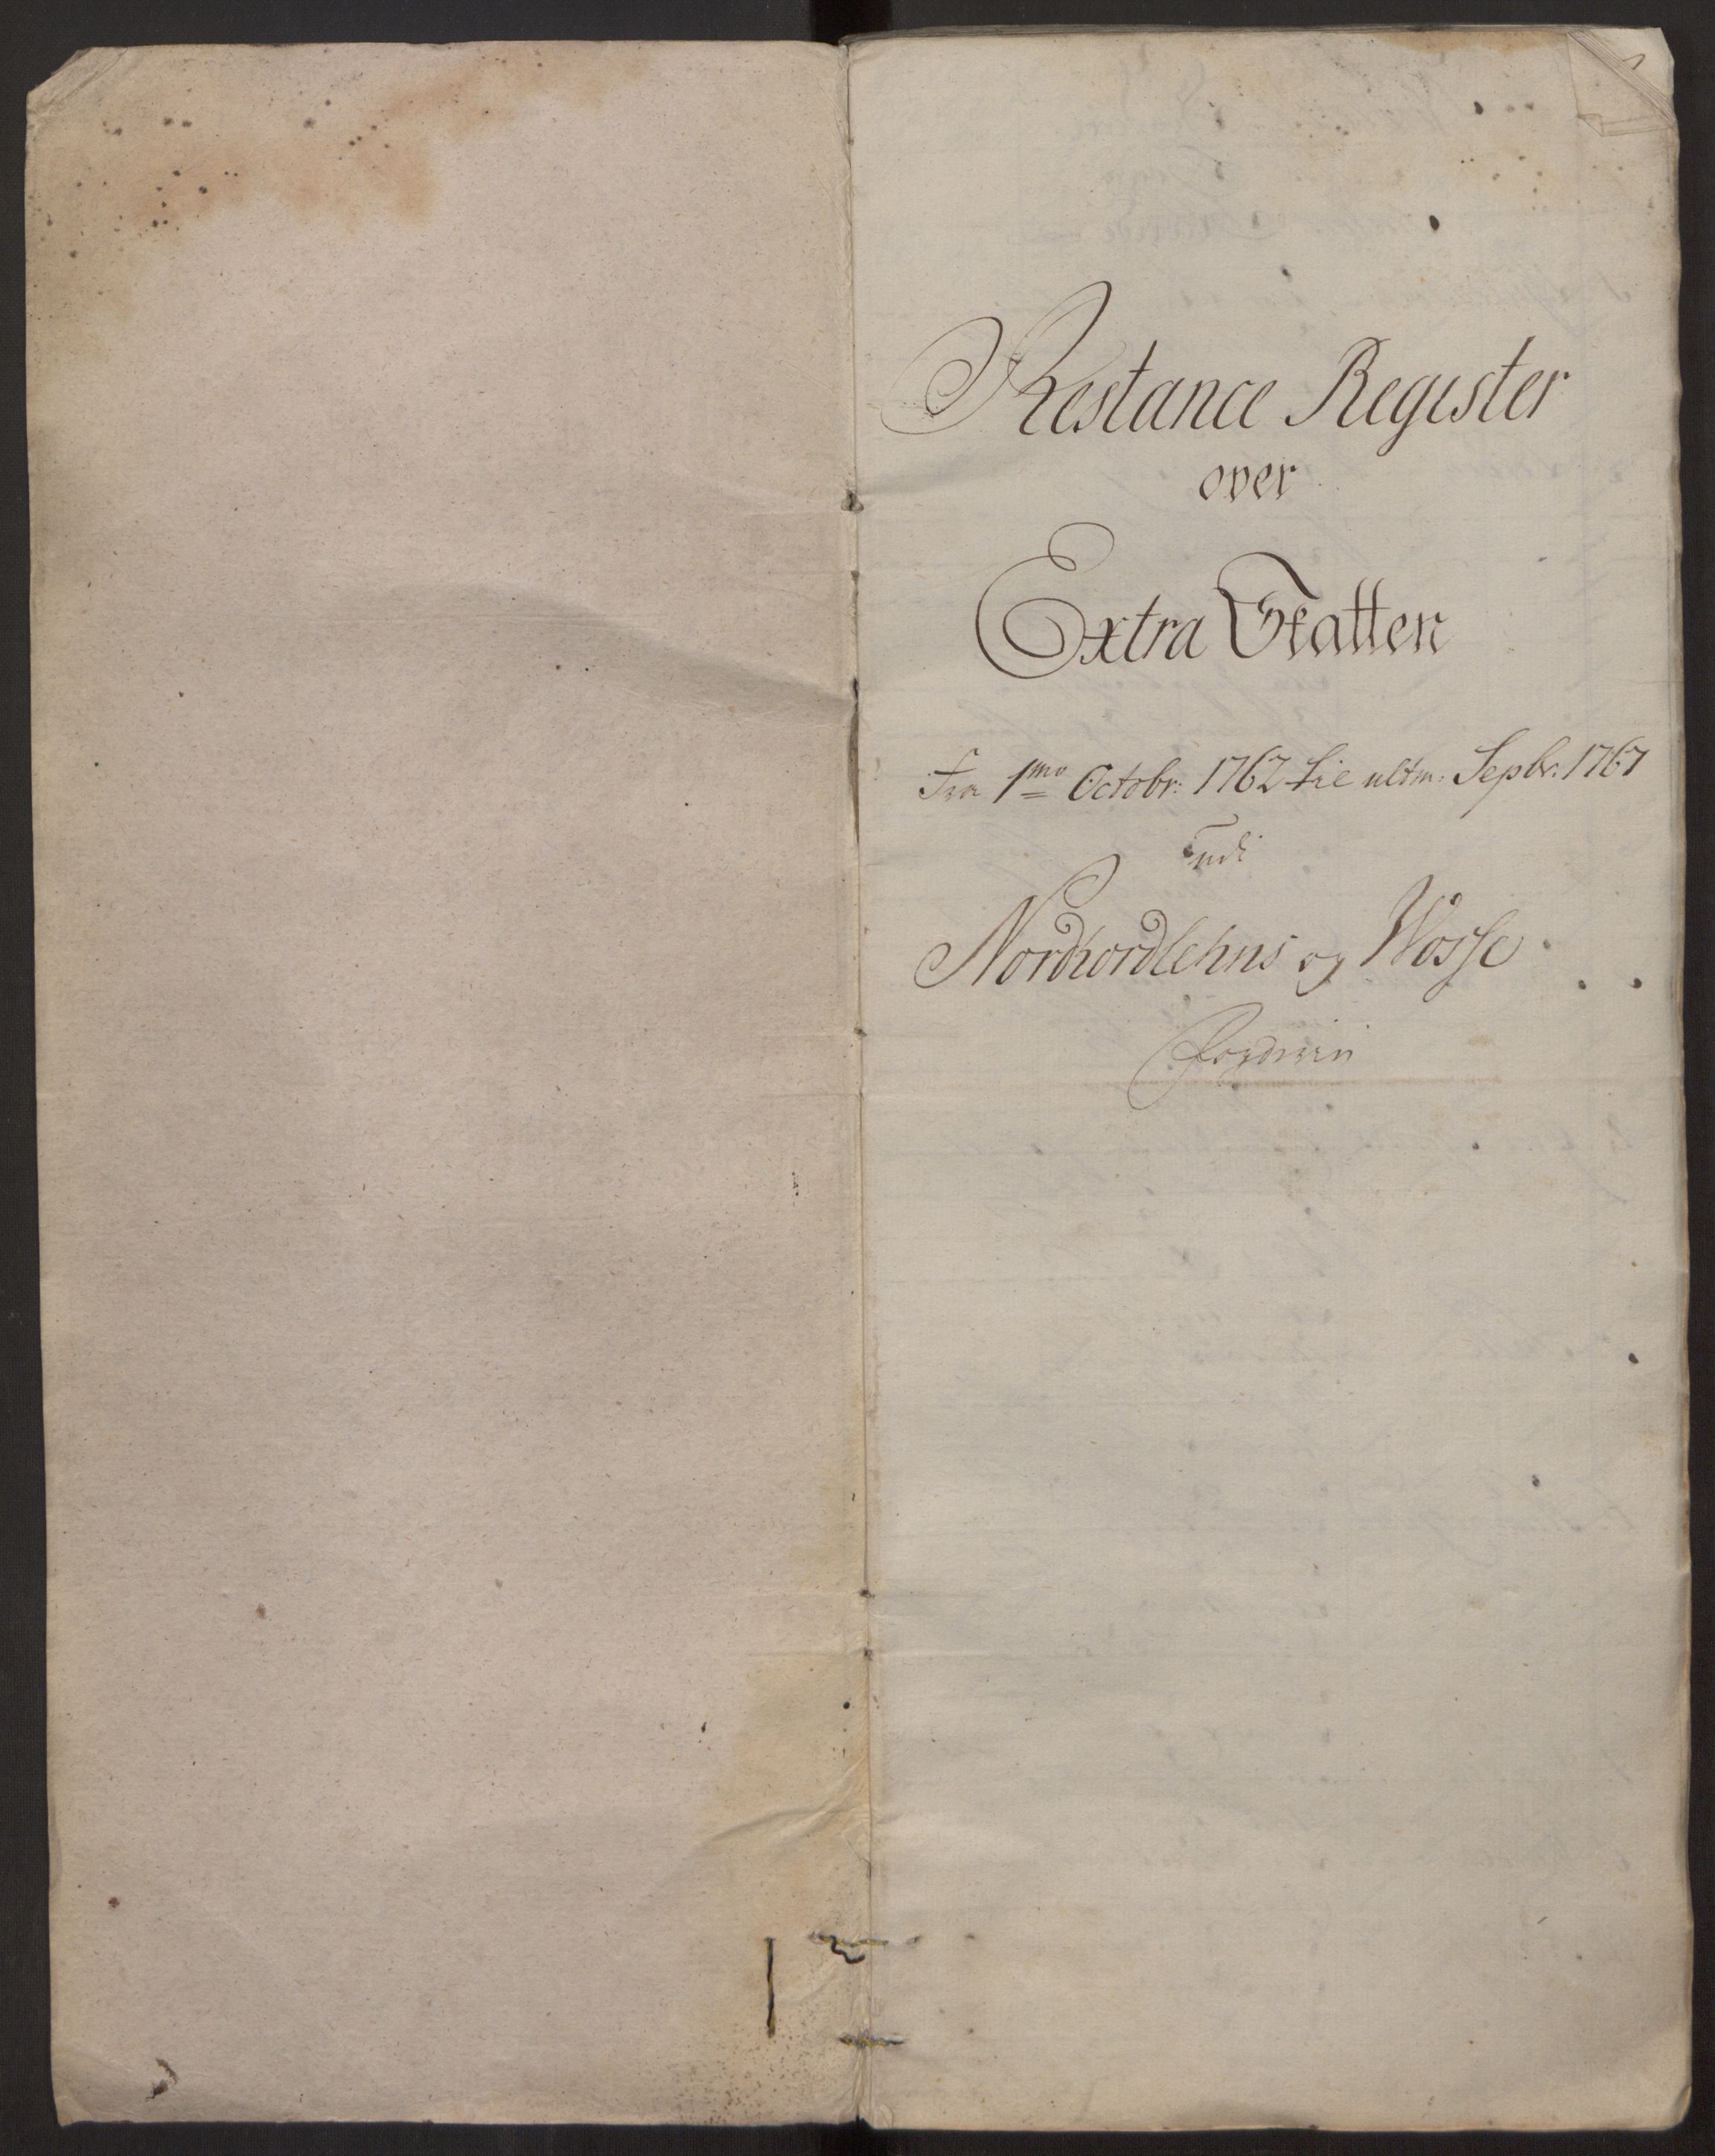 1
Restance Register
over
Extra Skatten
fra 1mo Octobr: 1762 til ultm: Sepbr. 1767
udi
Nordhordlehns og Wosse
Fogderie